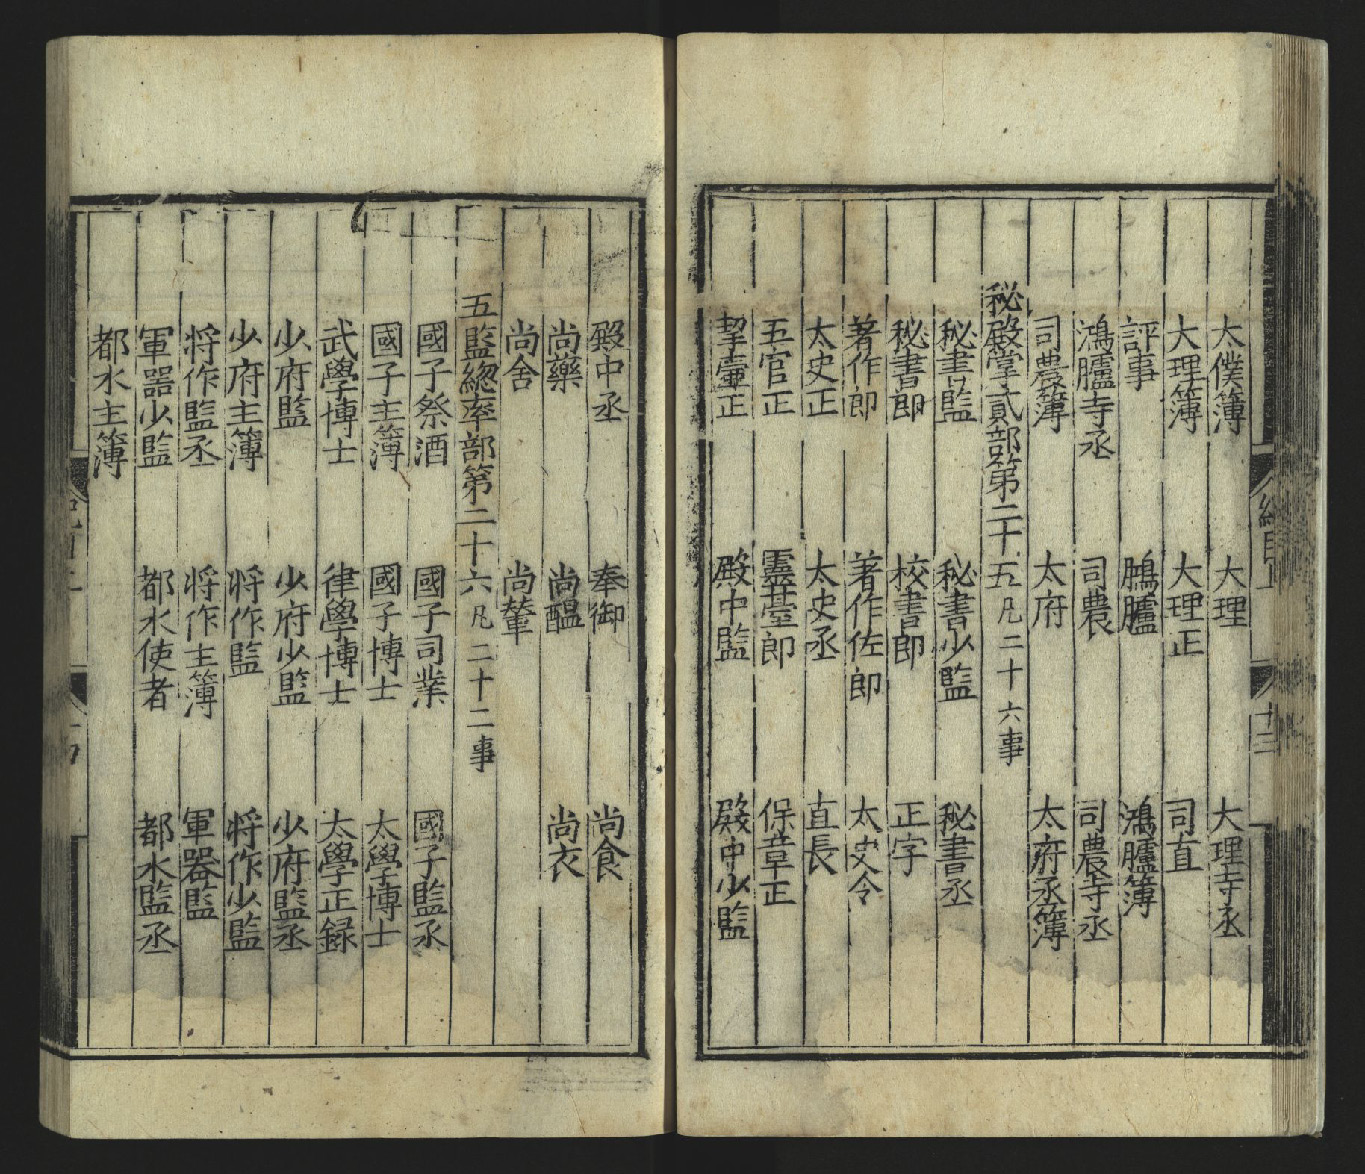 太僕簿 大理 大理寺丞
大理簿 大理正 司直
評事 鴻臚 鴻臚簿
鴻臚寺丞 司農 司農寺丞
司農簿 太府 太府丞簿
秘殿掌貳部第二十五凡二十六事
秘書監 秘書少監 秘書丞
秘書郎 校書郎 正字
著作郎 著作佐郎 太史令
太史正 太史丞 直長
五官正 靈臺郎 保章正
挈壷正 殿中監 殿中少監
殿中丞 奉御 尚食
尚藥 尚醖 尚衣
尚舍 尚輦
五監緫率部第二十六凡二十二事
國子祭酒 國子司業 國子監丞
國子主簿 國子博士 太學博士
武學博士 律學博士 太學正録
少府監 少府少監 少府監丞
少府主簿 将作監 将作少監
将作監丞 将作主簿 軍器監
軍器少監 都水使者 都水監丞
都水主簿